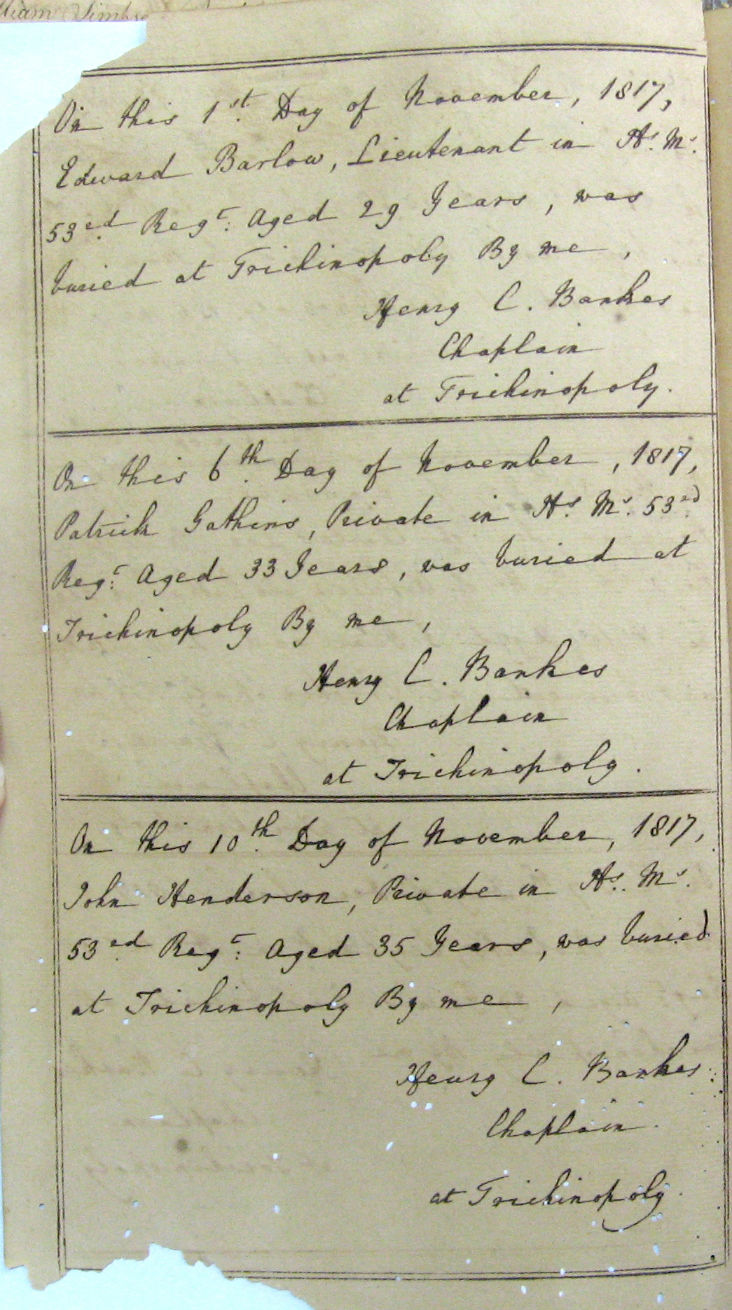 On this 1st. Day of November, 1817,
Edward Barlow, Lieutenant in Hs. Ms.
53ed Regt: Aged 29 Years, was
buried at Trichinopoly By me,
Henry C. Bankes
Chaplain
at Trichinopoly.
On this 6th. Day of November, 1817,
Patrick Gathins, Private in Hs. Ms. 53ed
Regt: Aged 33 Years, was buried at
Trichinopoly By me,
Henry C. Bankes
Chaplain
at Trichinopoly.
On this 10th. Day of November, 1817,
John Henderson, Private in Hs. Ms.
53ed Regt: Aged 35 Years, was buried
at Trichinopoly By me,
Henry C. Bankes
Chaplain
at Trichinopoly.